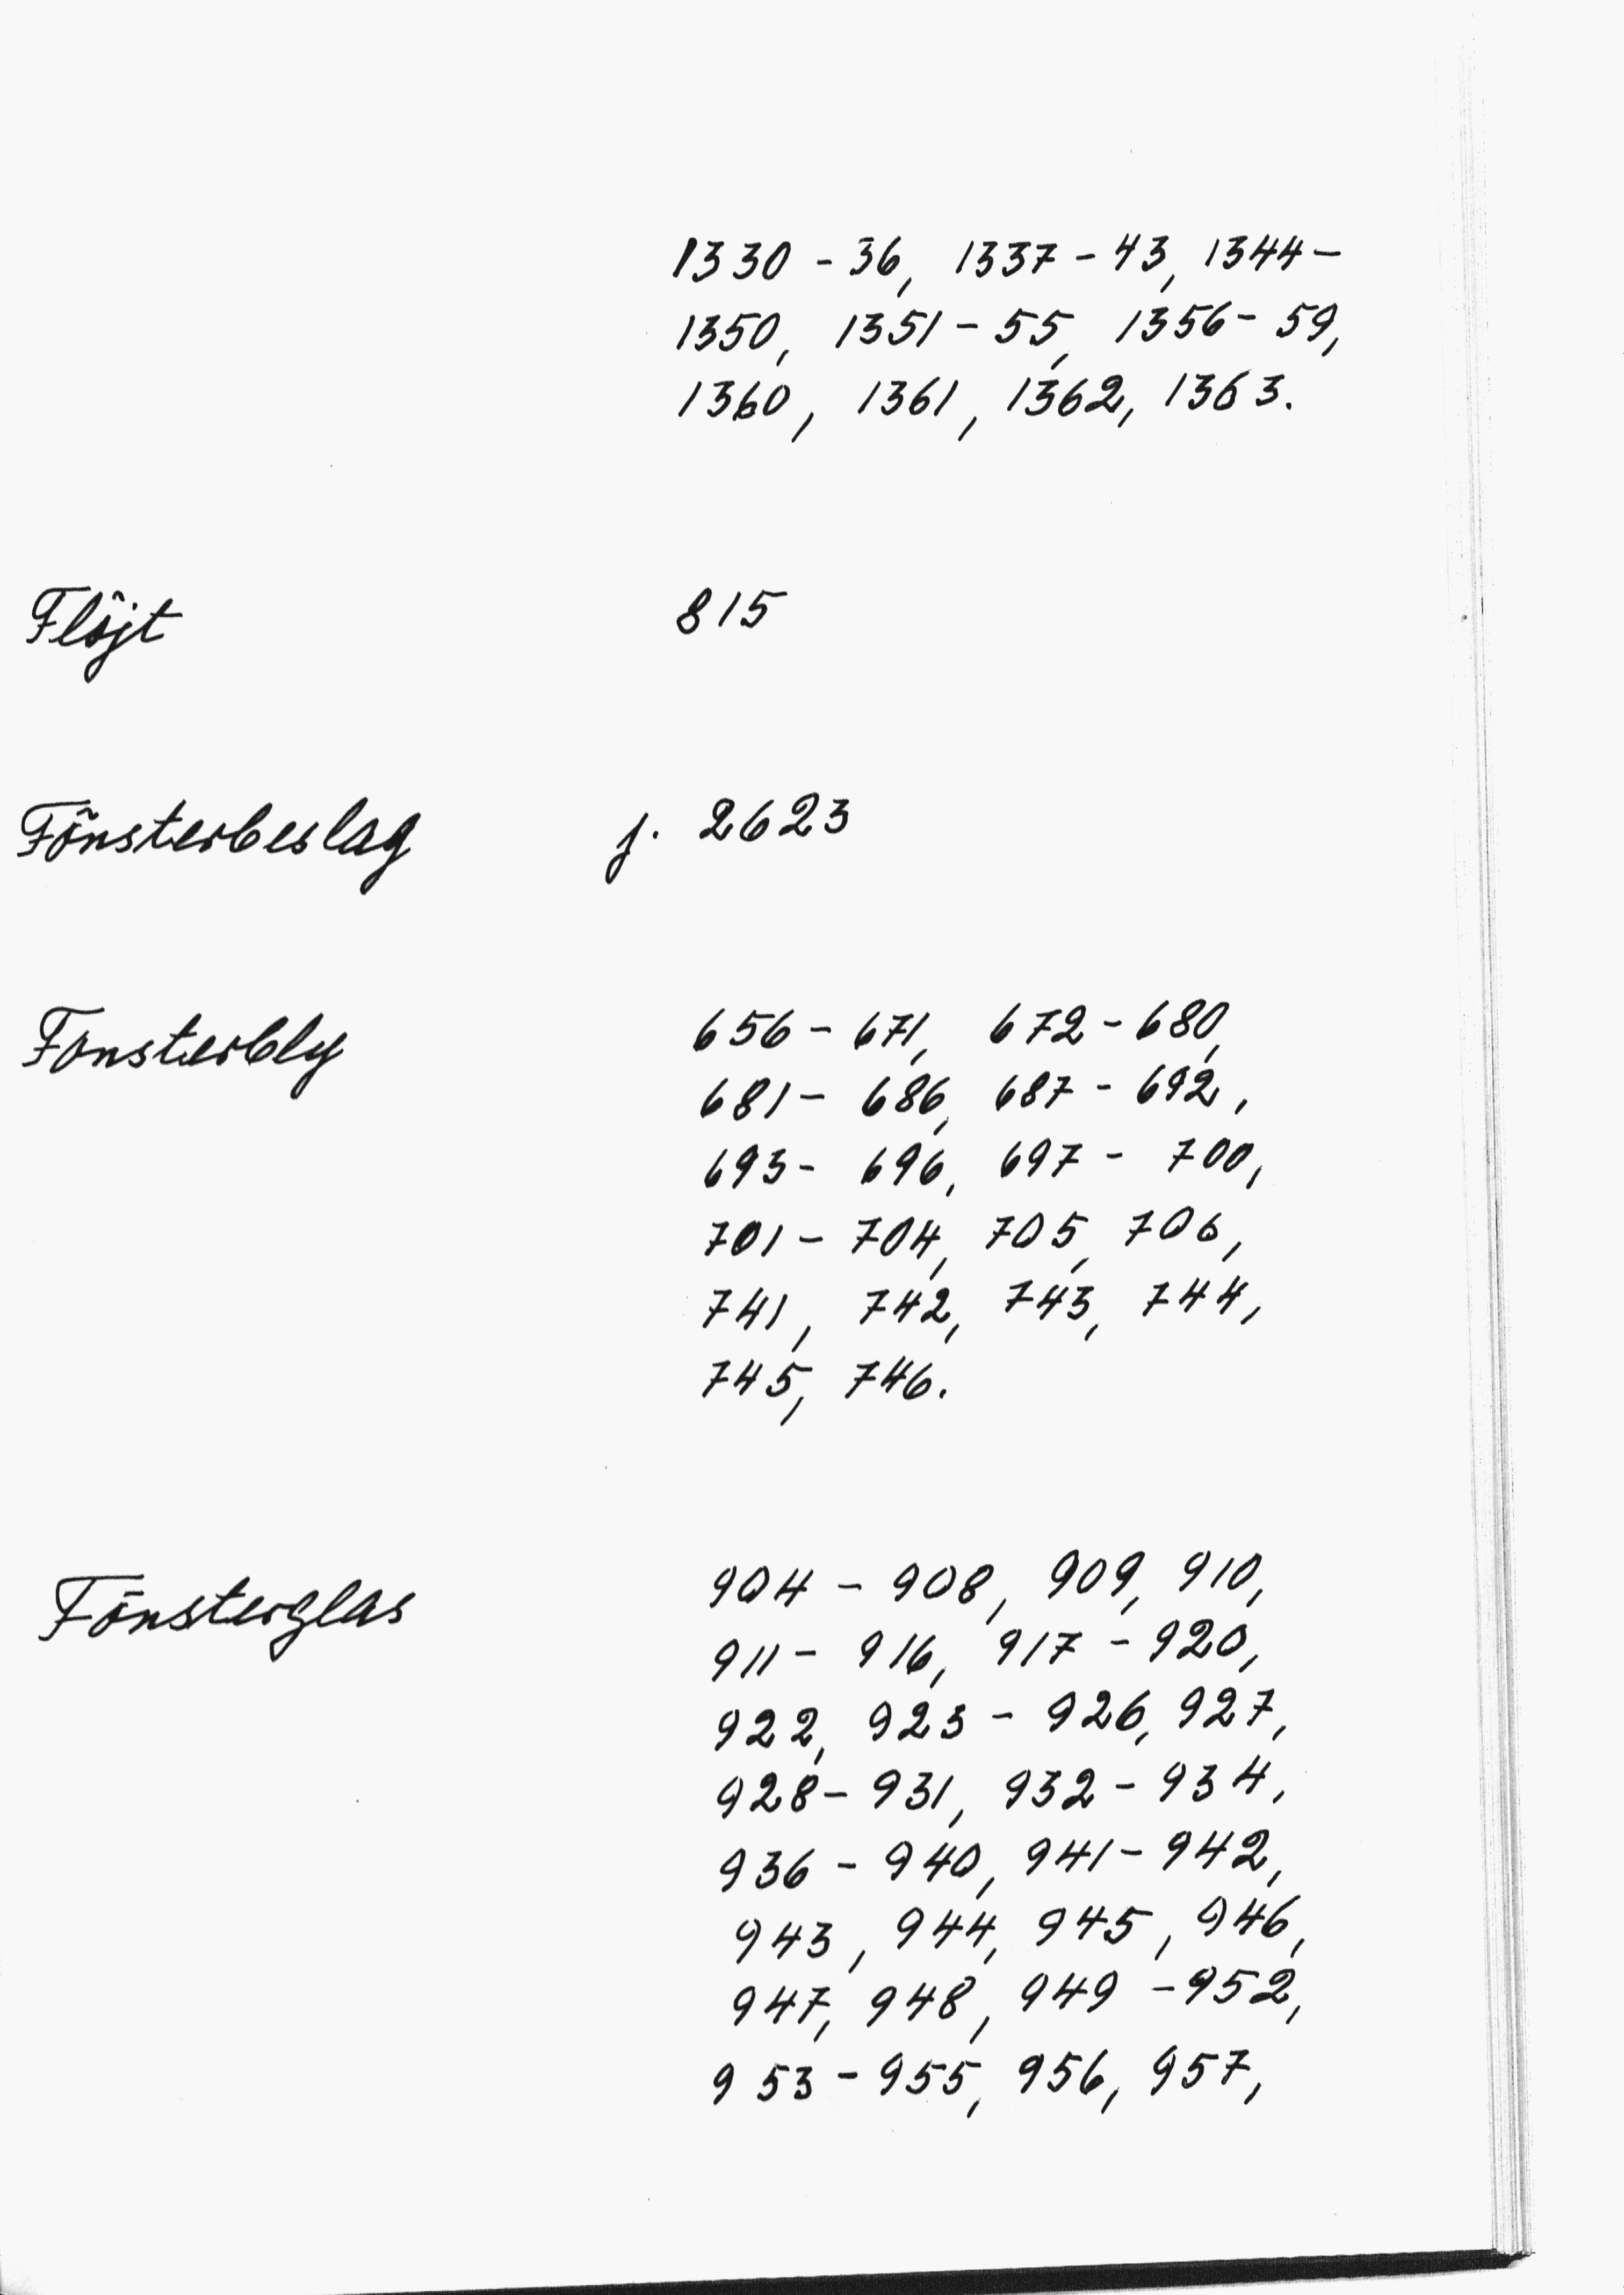 1330 - 36, 1337 - 43, 1344 -
1350, 1351 - 55, 1356 - 59,
1360, 1361, 1362, 1363.
Flöjt 815
Fönsterbeslag f. 2623
Fonsterbly 656 - 671, 672 - 680,
681 - 686, 687 - 692,
693 - 696, 697 - 700,
701 - 704, 705, 706,
741, 742, 743, 744,
745, 746.
Fönsterglas 904 - 908, 909, 910,
911 - 916, 917 - 920,
922, 923 - 926, 927,
928 - 931, 932 - 934,
936 - 940, 941 - 942,
943, 944, 945, 946,
947, 948, 949 - 952,
953 - 955, 956, 957,